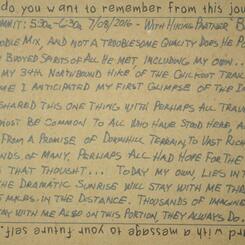 do you want to remember from this jou
MMIT: 5:30a-6:30a 7/08/2016 - WITH HIKING PARTNER
MIX, AND NOT A TROUBLESOME QUALITY DOES HE
BUOYED SPIRITS OF ALL HE MET, INCLUDING MY OWN...
MY 34TH NORTHBOUND HIKE OF THE CHILKOOT TRAIL
ME I ANTICIPATED MY FIRST GLIMPSE OF THE
SHARED THIS ONE THING WITH PERHAPS ALL TRAV
MOST COMMON TO ALL WHO HAVE STOOD HERE,
FROM A PROMISE OF DOWNHILL TERRAIN, TO VAST RICH
NDS, OF MANY. PERHAPS ALL HAD HOPE FOR THE
THAT THOUGHT... TODAY MY OWN, LIES IN
THE DRAMATIC SUNRISE WILL STAY WITH ME TH
MILES IN THE DISTANCE. THOUSANDS OF IMAGINE
TAY WITH ME ALSO ON THIS PORTION, THEY ALWAYS DO.
ard with a message to your future self.